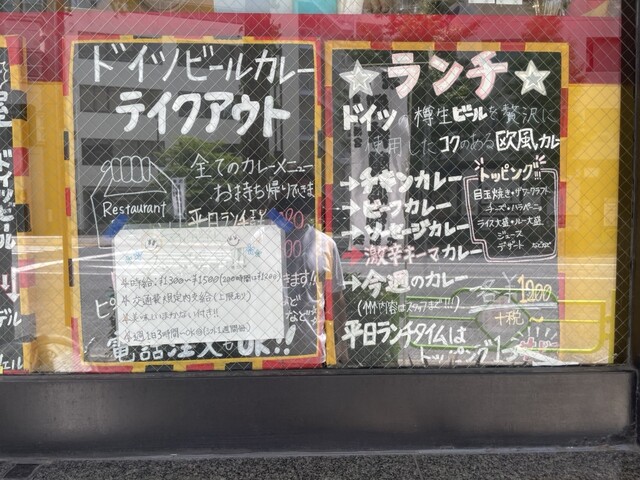 ドイツビール
デル
ドイツビールカレー
テイクアウト
全てのカレーメニュー
お持ち帰りできます
Restaurant
平日ランチ
ます!!
など
電話注文もOK!!
※時給:¥1300〜¥1500
※交通費規定内支給(上限あり)
※美味しいまかない付き!!
※週1日3時間〜OK
ランチ
ドイツの樽生ビールを贅沢に
使用したコクのある欧風カレー
→チキンカレー
→ビーフカレー
→ソーセージカレー
→激辛キーマカレー
→今週のカレー
(内容はスタッフまで!!)
トッピング!!
目玉焼き・ザワークラウト
チーズ・ハラペーニョ
ライス大盛・ルー大盛
ジュース
デザート などなど
各¥1200
+税〜
平日ランチタイムは
トッピング1つ